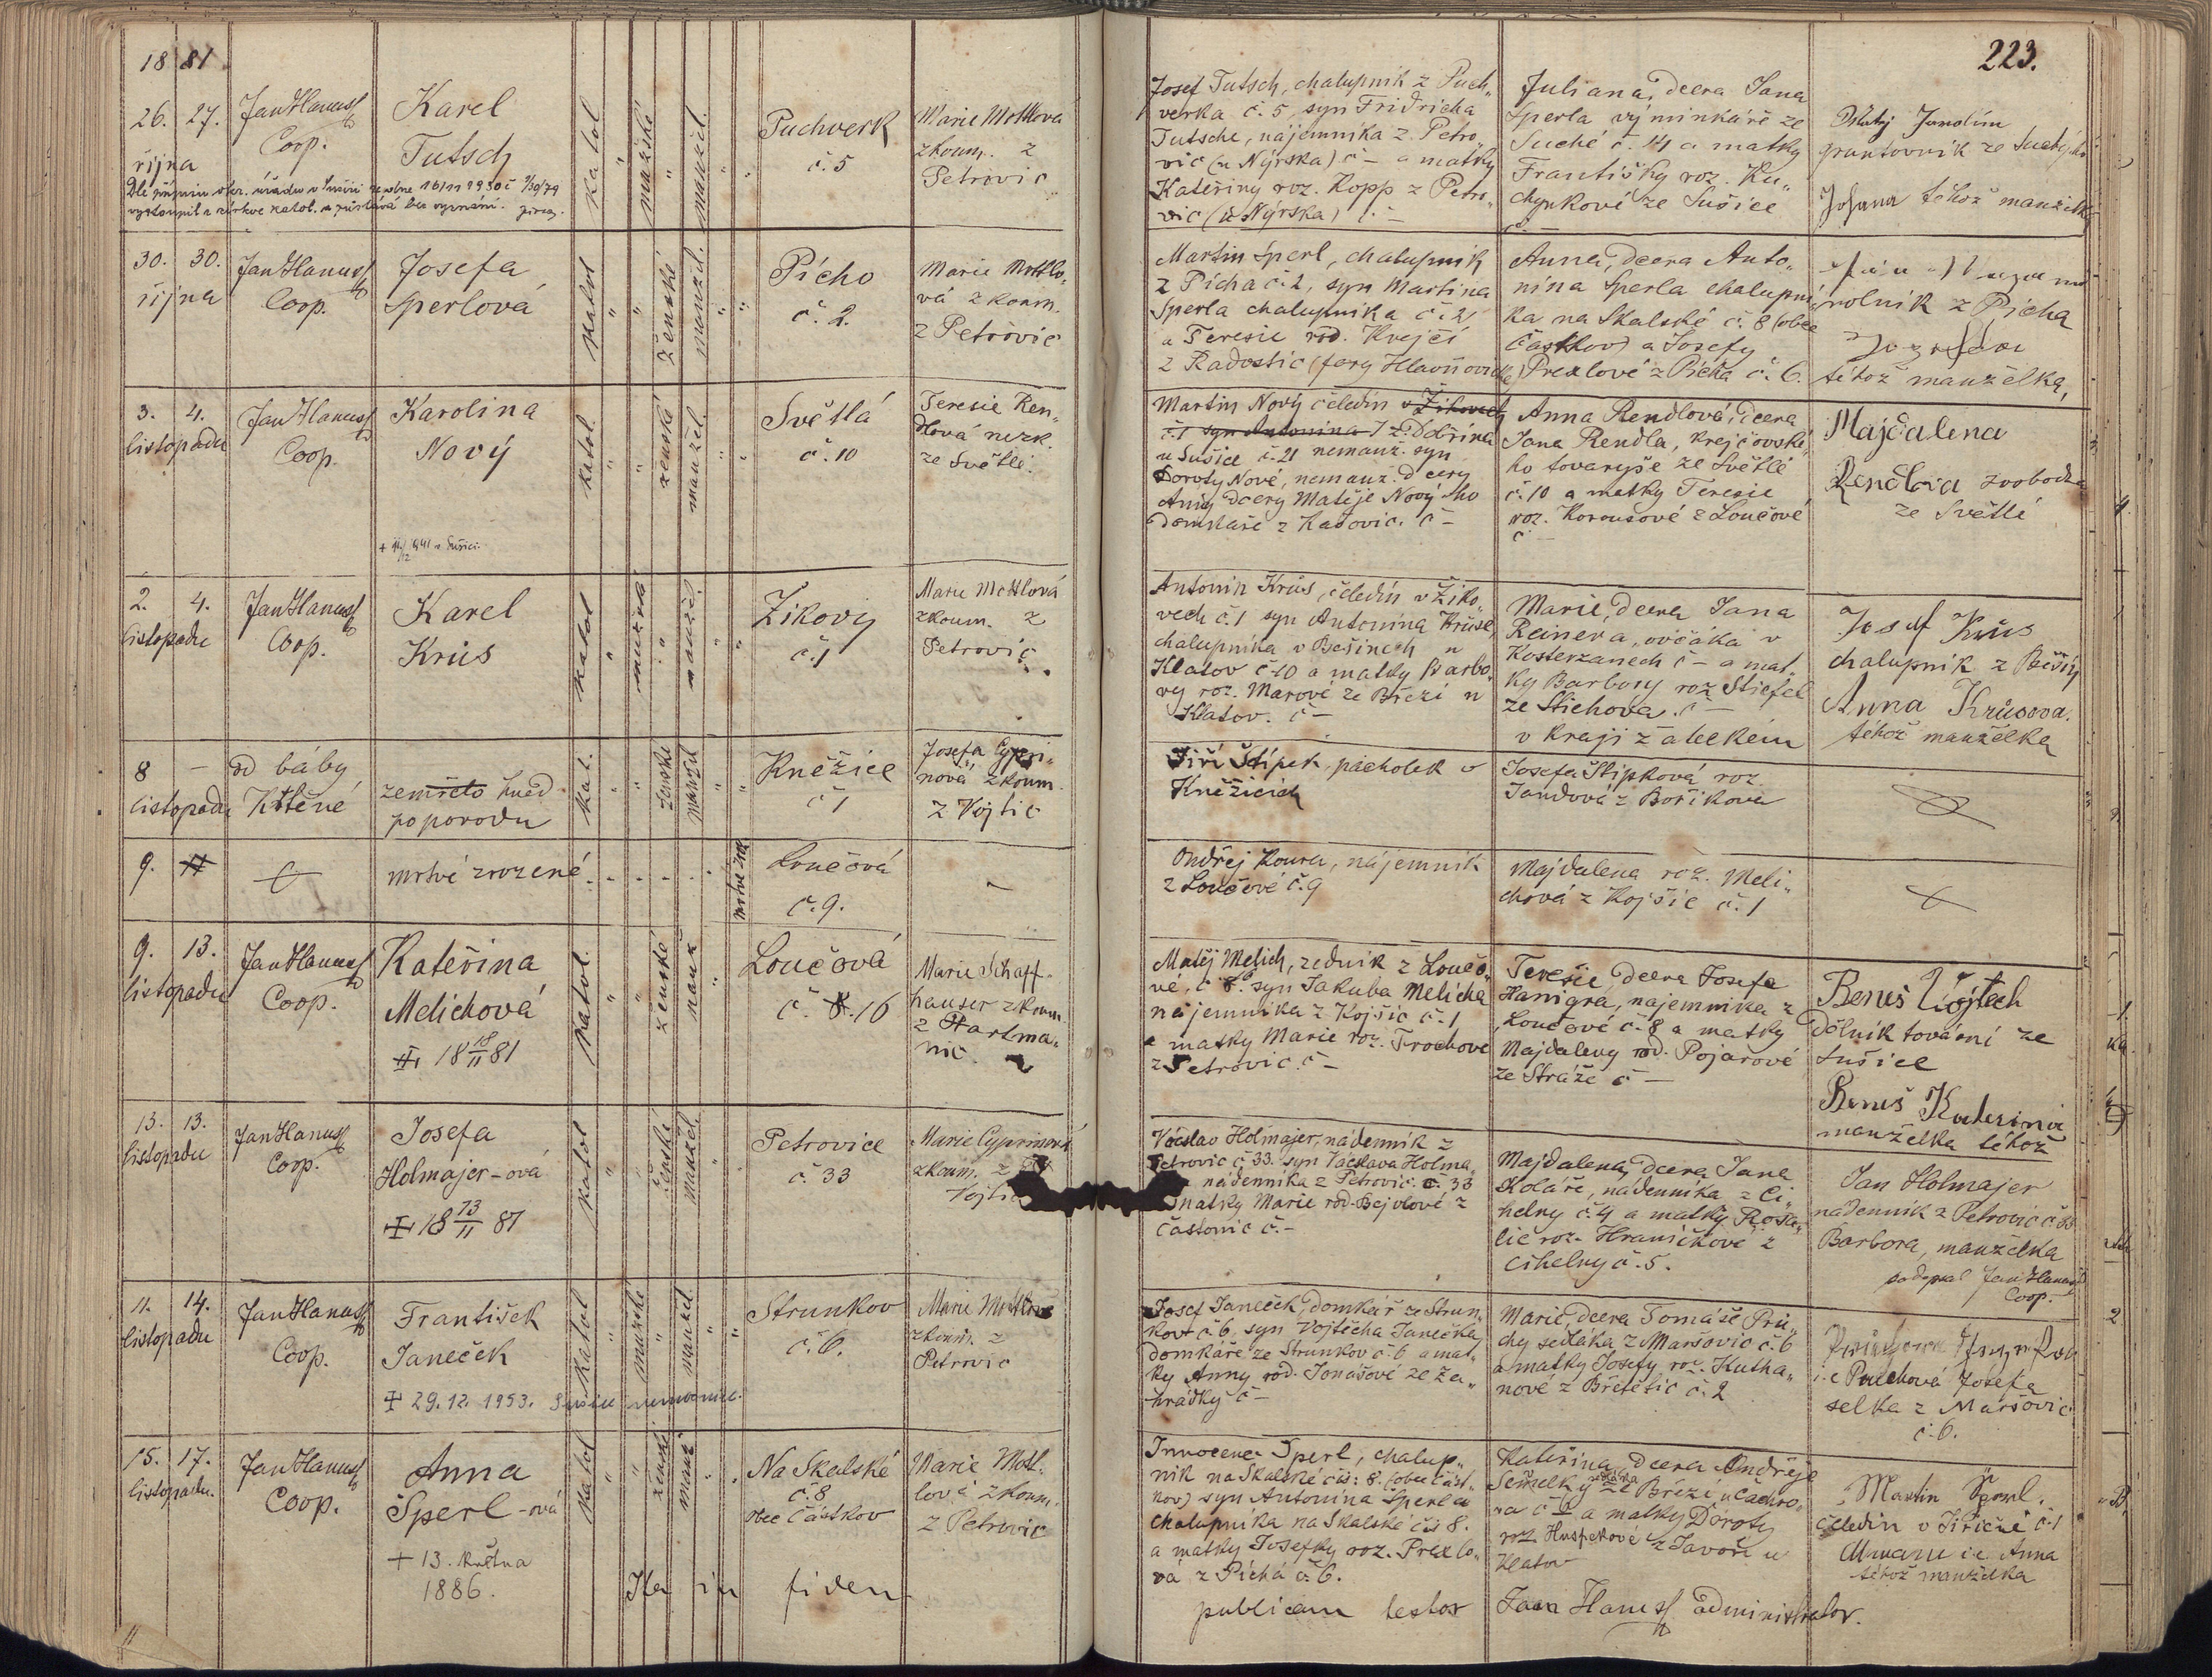 18 81
223.
26. 27.
října
Jan Hanuss
Coop.
Karel
Tutsch
katol
"
mužské
"
manžel.
"
"
Puchverk
č. 5
Marie Mottlova
zkoum. z
Petrovic
Josef Tutsch, chalupník z Puch„
verka č. 5, syn Fridricha
Tutsche, nájemníka z Petro„
vic (u Nýrska) č – a matky
Kateřiny roz. Kopp z Petro„
vic (u Nýrska) č. –
Juliana, dcera Jana
Sperla výminkáře ze
Suché č. 14 a matky
Františky roz. Ku„
chynkové ze Sušice
gruntovník ze Suché
Johana téhož manželka
30. 30.
října
Jan Hanuss
Coop.
Josefa
Sperlová
katol
"
"
ženské
manžel.
"
"
Pícho
č. 2.
Marie Mottlo„
vá zkoum.
z Petrovic
Martin Sperl, chalupník
z Pícha č. 2, syn Martina
Sperla chalupníka č. 2
a Teresie rod. Krejčí
z Radostic (fary Hlavňovické)
Anna, dcera Auto„
nína Sperla chalupní
ka na Skalské č. 8 (obce
Částkov) a Josefy
Prexlové z Pícha č. 6.
rolník z Pícha
téhož manželka,
3. 4.
listopadu
Jan Hanuss
Coop.
Karolina
Nový
katol.
"
"
ženské
manžel.
"
"
Světlá
č. 10
Teresie Ren„
dlová nezk.
ze Světlé.
Martin Nový čeledín v Žikovech
č. 1 syn Antonína z Dobřína
u Sušice č. 21 nemanž. syn
Doroty Nové, nemanž. dcery
Anny dcery Matěje Nového
domkáře z Kašovic. č –
Anna Rendlová, dcera
Jana Rendla, krejčovské„
ho tovaryše ze Světlé
č. 10 a matky Teresie
roz. Korousové z Loučové
č –
Majdalena
Rendlová svobodná
ze Světlé
2. 4.
listopadu
Jan Hanuss
Coop.
Karel
Krůs
katol
"
mužské
"
manžel
"
"
Žikovy
č. 1
Marie Mottlová
zkoum. z
Petrovic
Antonín Krůs, čeledín v Žiko„
vech č. 1 syn Antonína Krůse,
chalupníka v Bešinech u
Klatov č 10 a matky Barbo„
ry roz. Marové ze Březí u
Klatov. č –
Marie, dcera Jana
Reinera, ovčáka v
Kosterzanech č – a mat„
ky Barbory roz Stiefel
ze Stichova. č –
v kraji žateckém
Josef Krůs
chalupník z Bešin
Anna Krůsova.
téhož manželka
8 –
listopadu
od báby
Křtěné
zemřelo hned
po porodu
kat.
"
"
ženské
manžel
"
"
Kněžice
č 1
Josefa Cypri„
nová zkoum.
z Vojtic
Jiří Štípek, pacholek v
Kněžicích
Josefa Štípková roz.
Jandová z Bořikova
9. 11
mrtvě zrozené
mrtvě zroz.
Loučová
č. 9.
–
Ondřej Koura, nájemník
z Loučové č. 9
Majdalena roz. Meli„
chová z Kojšic č. 1
9. 13.
listopadu
Jan Hanuss
Coop.
Kateřina
Melichová
18 18/11 81
katol.
"
"
ženské
manž
"
Loučová
č. 8. 16
Marie Schaff„
hauser zkoum
z Hartma„
nic.
Matěj Melich, zedník z Loučo„
vé, č 8. syn Jakuba Melicha
nájemníka z Kojšic č. 1
a matky Marie roz. Trochové
z Petrovic. č –
Teresie dcera Josefa
Hanigra, nájemníka z
Loučové č. 8 a matky
Majdaleny rod. Pojarové
ze Stráže č –
Beneš Vojtěch
dělník tovární ze
Sušice
Beneš Kateřina
manželka téhož
13. 13.
listopadu
Jan Hanuss
Coop.
Josefa
Holmajer-ová
18 13/11 81
katol
"
ženské
manžel
"
Petrovice
č. 33
Marie Cyprinová
zkoum. z
Vojtic
Václav Holmajer, nádenník z
Petrovic č 33. syn Václava Holma„
nádenníka z Petrovic. č. 33
matky Marie rod. Bejvlové z
Častonic č. –
Majdalena, dcera Jana
Koláře, nádenníka z Ci„
helny č. 4 a matky Rosa„
lie roz. Hraničkové z
Cihelny č. 5.
Jan Holmajer
nadenník z Petrovic č 33
Barbora, manželka
podepsal Jan Hanuss
Coop.
11. 14.
listopadu
Jan Hanuss
Coop.
František
Janeček
29. 12. 1953. Sušice nemocnice.
katol
"
mužské
"
manžel
"
"
Strunkov
č. 6.
Marie Mottlová
zkoum. z
Petrovic
Josef Janeček, domkář ze Strun„
kov č. 6, syn Vojtěcha Janečka,
domkáře ze Strunkov č. 6 a mat„
ky Anny rod. Jonášové ze Za„
hrádky č –
Marie, dcera Tomáše Prů„
chy sedláka z Maršovic č. 6
a matky Josefy roz. Kutha„
nové z Břetětic č. 2
i.e Průchová Josefa
selka z Maršovic
č. 6.
15. 17.
listopadu.
Jan Hanuss
Coop.
Anna
Šperl-ová
+ 13. května
1886.
katol
"
"
ženské
manž
"
"
Na Skalské
č. 8
obec Částkov
Marie Mott„
lová zkoum.
z Petrovic
Innocenc Šperl, chalup„
ník na Skalské čís: 8. (obec Část„
kov) syn Antonína Šperla
chalupníka na Skalské čís 8.
a matky Josefky roz. Prexlo„
vá z Pícha č. 6.
Kateřina, dcera Ondřeje
ze Březí u Čachro„
va č 6 a matky Doroty
roz. Huspekové z Javoří u
Klatov
Martin Šperl.
čeledín v Jiřičné č. 1
i.e. Anna
téhož manželka
Ita in fidem
publicam testor Jan Hanuss administrator.